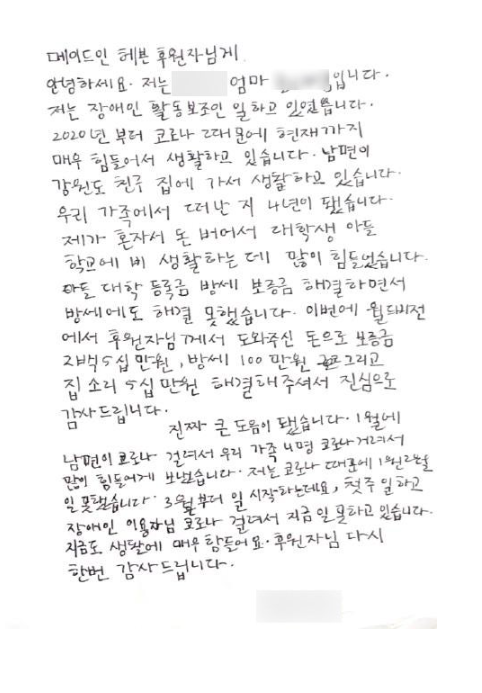 메이드인 헤븐 후원자님게
안녕하세요. 저는 엄마 입니다.
저는 장애인 활동보조인 일하고 있었습니다.
2020년 부터 코로나 때문에 현재까지
매우 힘들어서 생활하고 있습니다. 남편이
강원도 친구 집에 가서 생활하고 있습니다.
우리 가족에서 떠난 지 4년이 됐습니다.
제가 혼자서 돈 버어서 대학생 아들
학교에 비 생활하는데 많이 힘들었습니다.
아들 대학 등록금 방세 보증금 해결하면서
방세에도 해결 못했습니다. 이번에 월드비전
에서 후원자님께서 도와주신 돈으로 보증금
2백 5십 만원, 방세 100만원 그리고
집 소리 5십 만원 해결해주셔서 진심으로
감사드립니다.
진짜 큰 도움이 됐습니다. 1월에
남편이 코로나 걸려서 우리 가족 4명 코로나 거려서
많이 힘들에게 보냈습니다. 저는 코로나 때문에 1월 2월
일 못했습니다. 3월부터 일 시작하는데요, 첫주 일하고
장애인 이용자님 코로나 걸려서 지금 일 못하고 있습니다.
지금도 생활에 매우 힘들어요. 후원자님 다시
한번 감사드립니다.